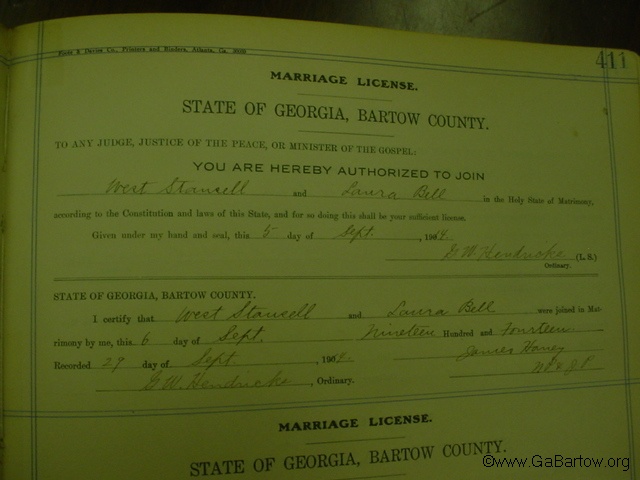 Foote & Davies Co., Printers and Binders, Atlanta, Ga.
411
MARRIAGE LICENSE.
STATE OF GEORGIA, BARTOW COUNTY.
TO ANY JUDGE, JUSTICE OF THE PEACE, OR MINISTER OF THE GOSPEL:
YOU ARE HEREBY AUTHORIZED TO JOIN
West Stansell and Laura Bell in the Holy State of Matrimony,
according to the Constitution and laws of this State, and for so doing this shall be your sufficient license.
Given under my hand and seal, this 5 day of Sept. , 190
G W Hendricks (L. S.)
Ordinary.
STATE OF GEORGIA, BARTOW COUNTY.
I certify that West Stansell and Laura Bell were joined in Mat-
rimony by me, this 6 day of Sept. Nineteen Hundred and Fourteen
Recorded 29 day of Sept. , 190 James Haney
G W Hendricks , Ordinary.
MARRIAGE LICENSE.
STATE OF GEORGIA, BARTOW COUNTY.
©www.GaBartow.org